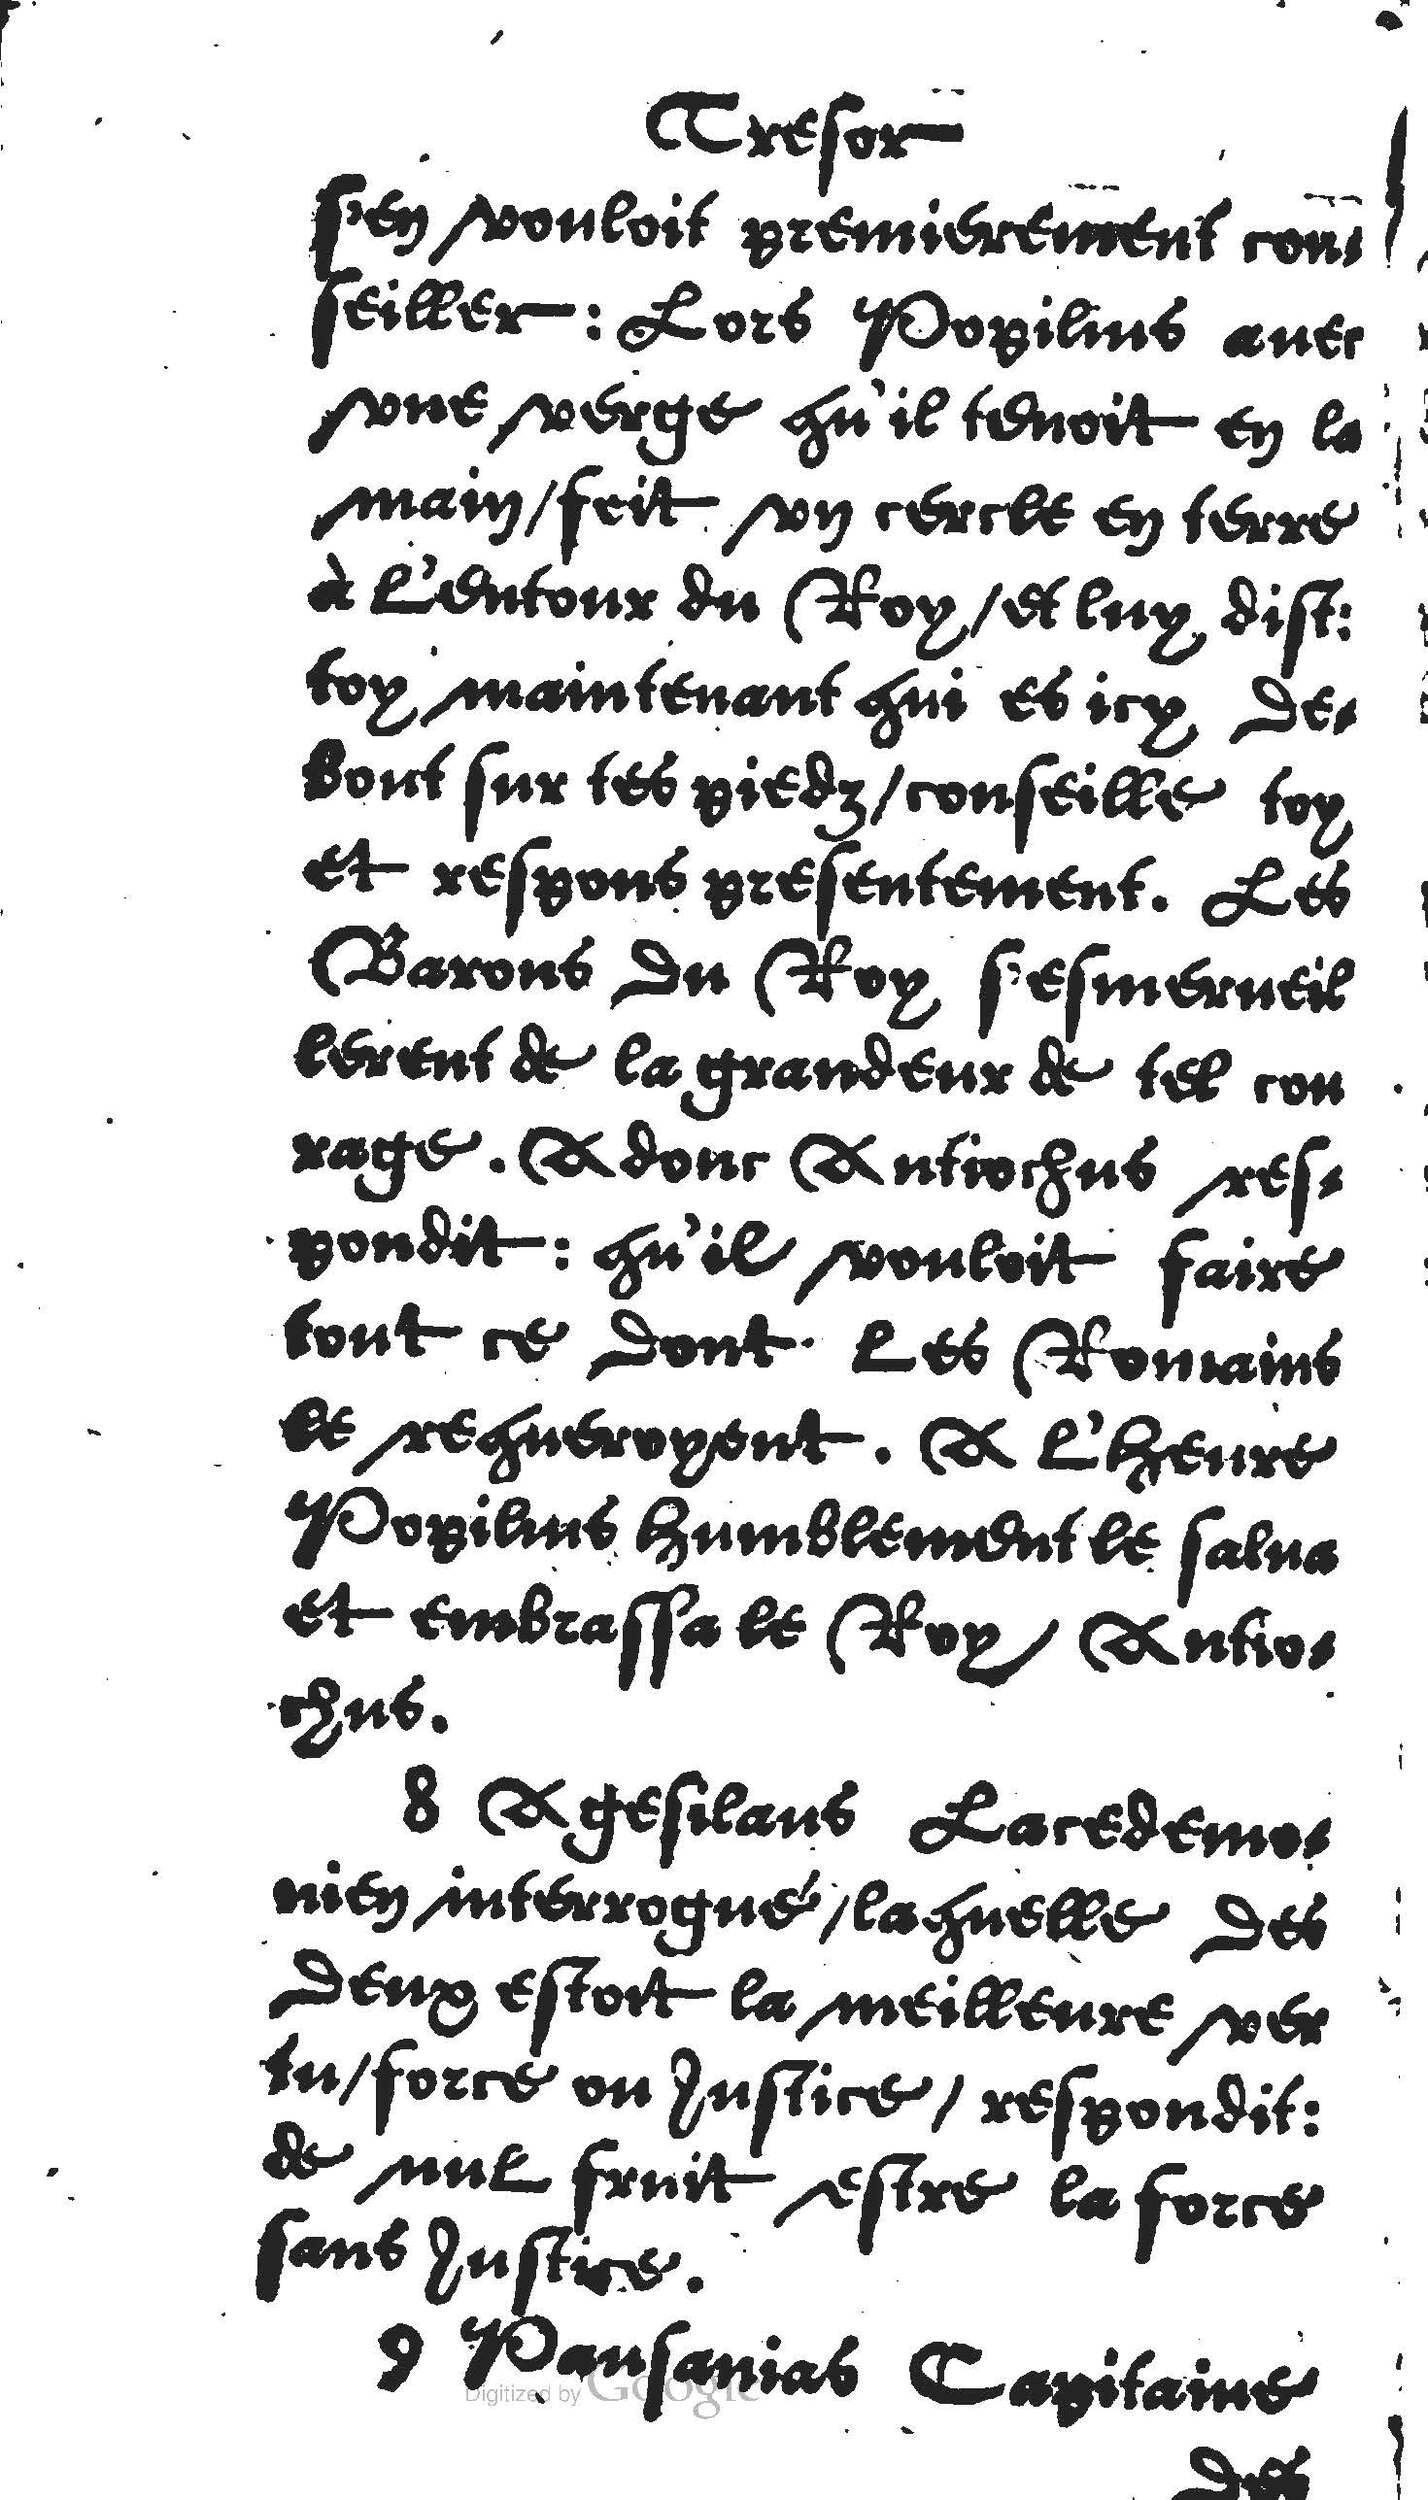 Tresor
s'en vouloit premierement con-
seiller: Lors Popilius auec
vne verge qu'il tenoit en la
main/feit vn cercle en terre
à l'entour du Roy/et luy dist:
toy maintenant qui es icy de-
bout sur tes piedz/conseille toy
et respons presentement. Les
Barons du Roy s'esmerueil
lerent de la grandeur de tel cou
rage. Adonc Antiochus res-
pondit: qu'il vouloit faire
tout ce dont les Romains
le requeroyent. A l'heure
Popilius humblement le salua
et embrassa le Roy Antio-
chus.
8 Agesilaus Lacedemo-
nien interrogué/laquelle des
deux estoit la meilleure ver
tu/force ou Justice/respondit:
de nul fruit estre la force
sans Justice.
9 Pausanias Capitaine
des
Digitized by Google